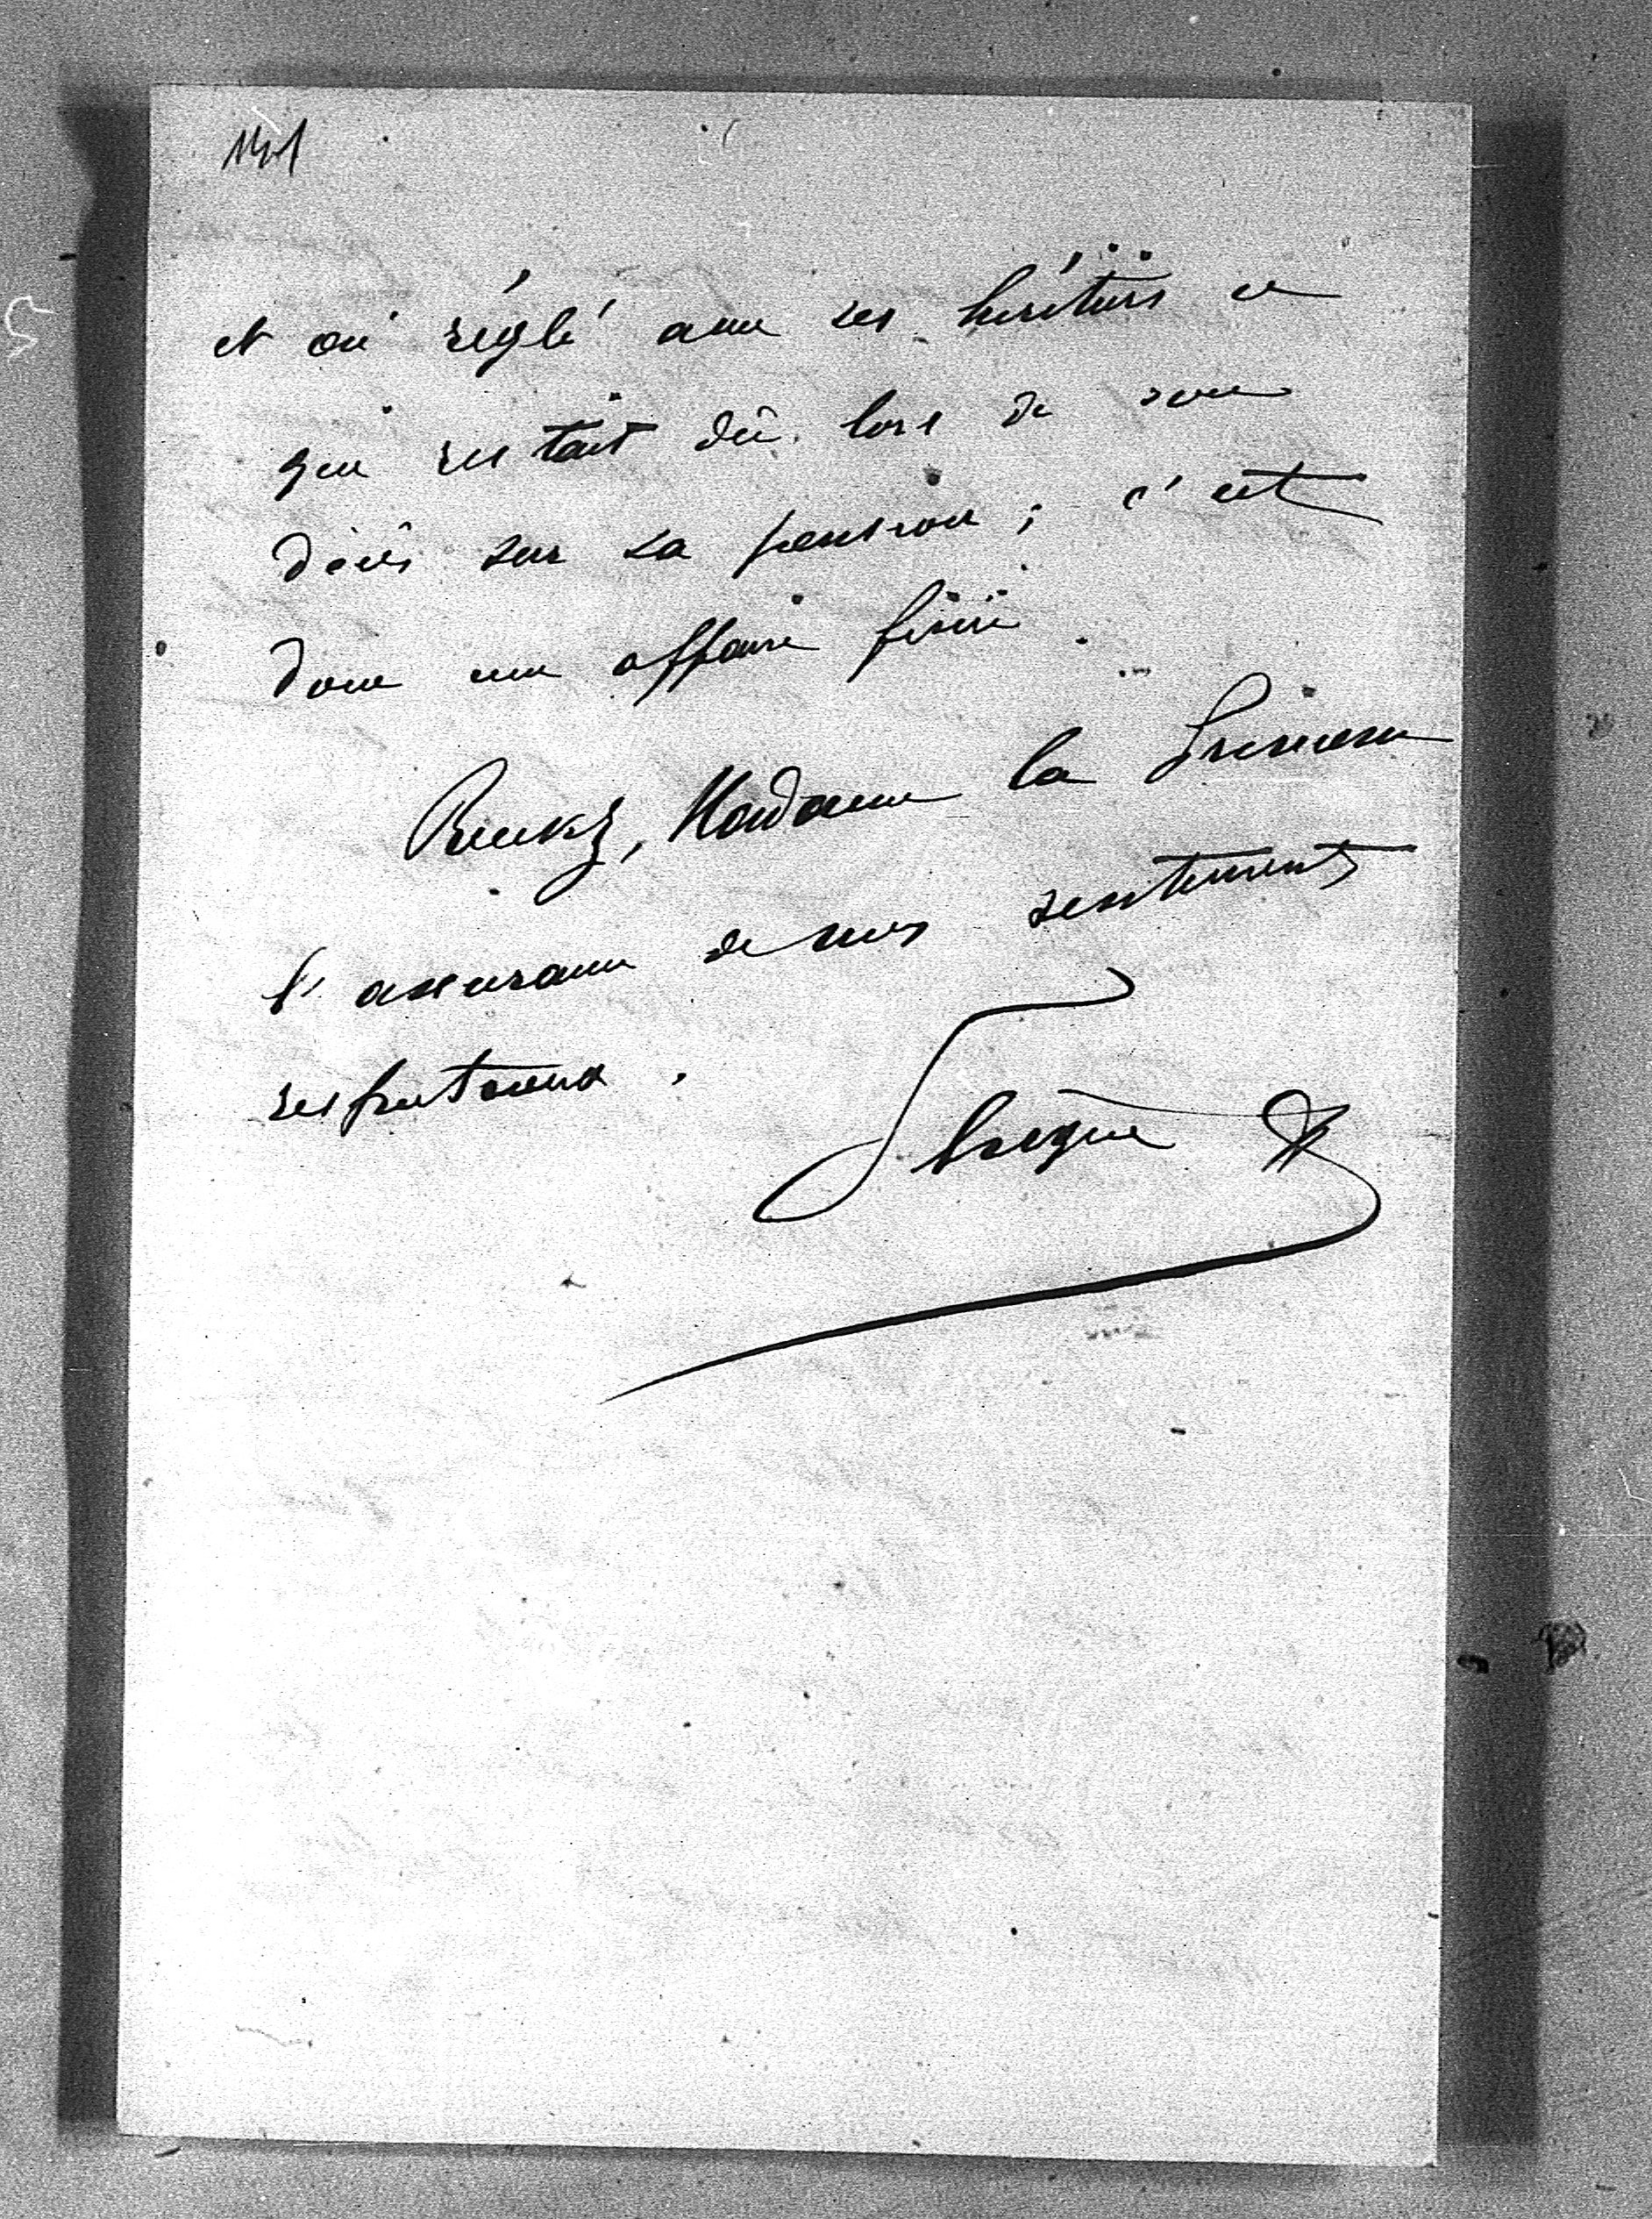 et ai réglé avec ses héritiers ce
qui restait dû lors de son
décès sur sa pension ; c'est
donc une affaire finie.
Recevez, Madame la Princesse
l'assurance de mes sentiments
respectueux.